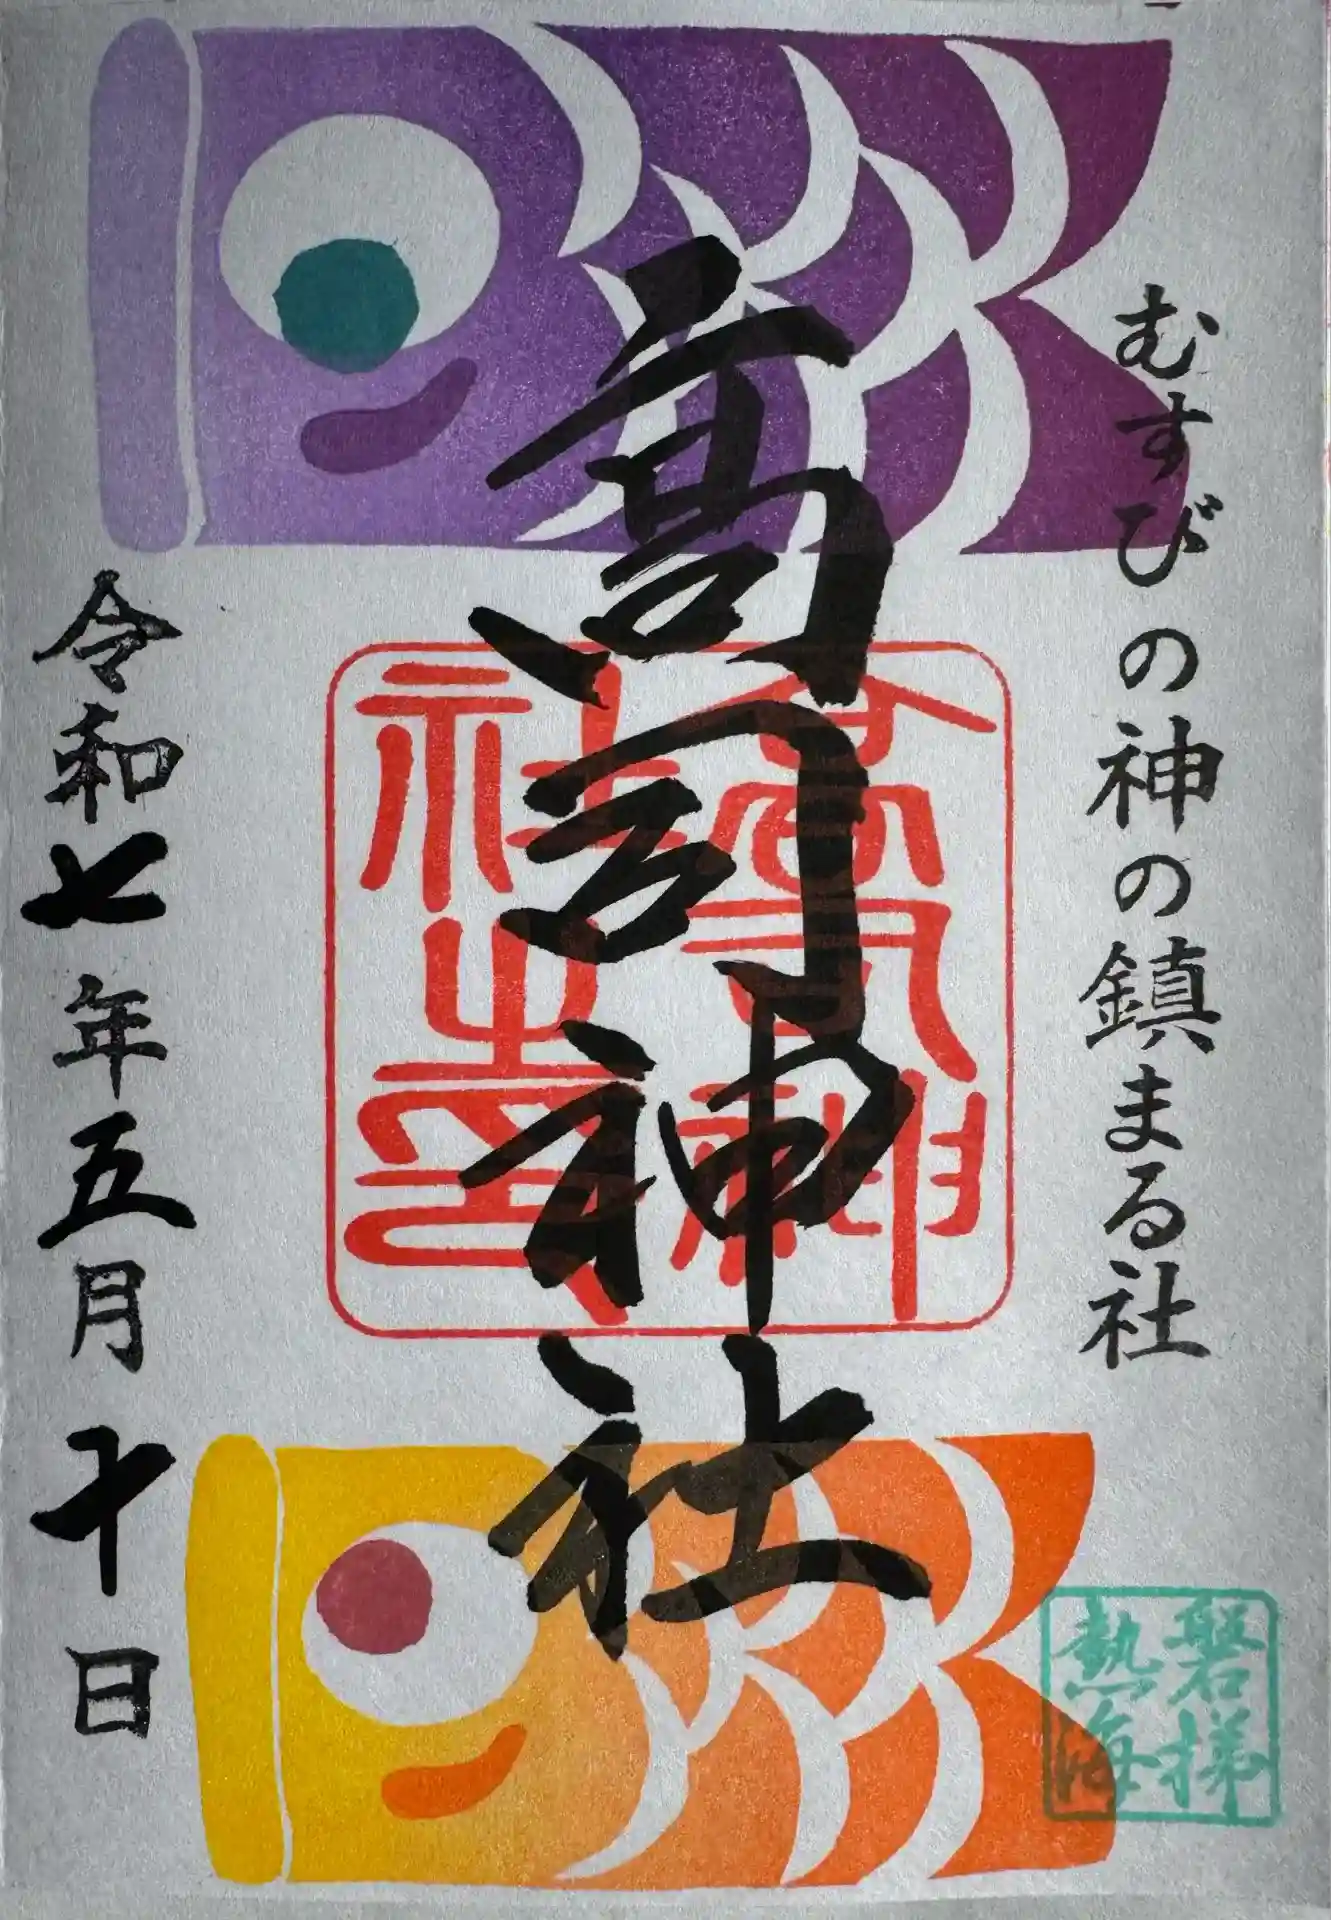 むすびの神の鎮まる社
高司神社
高司神社之印
令和七年五月十日
磐梯
熱海